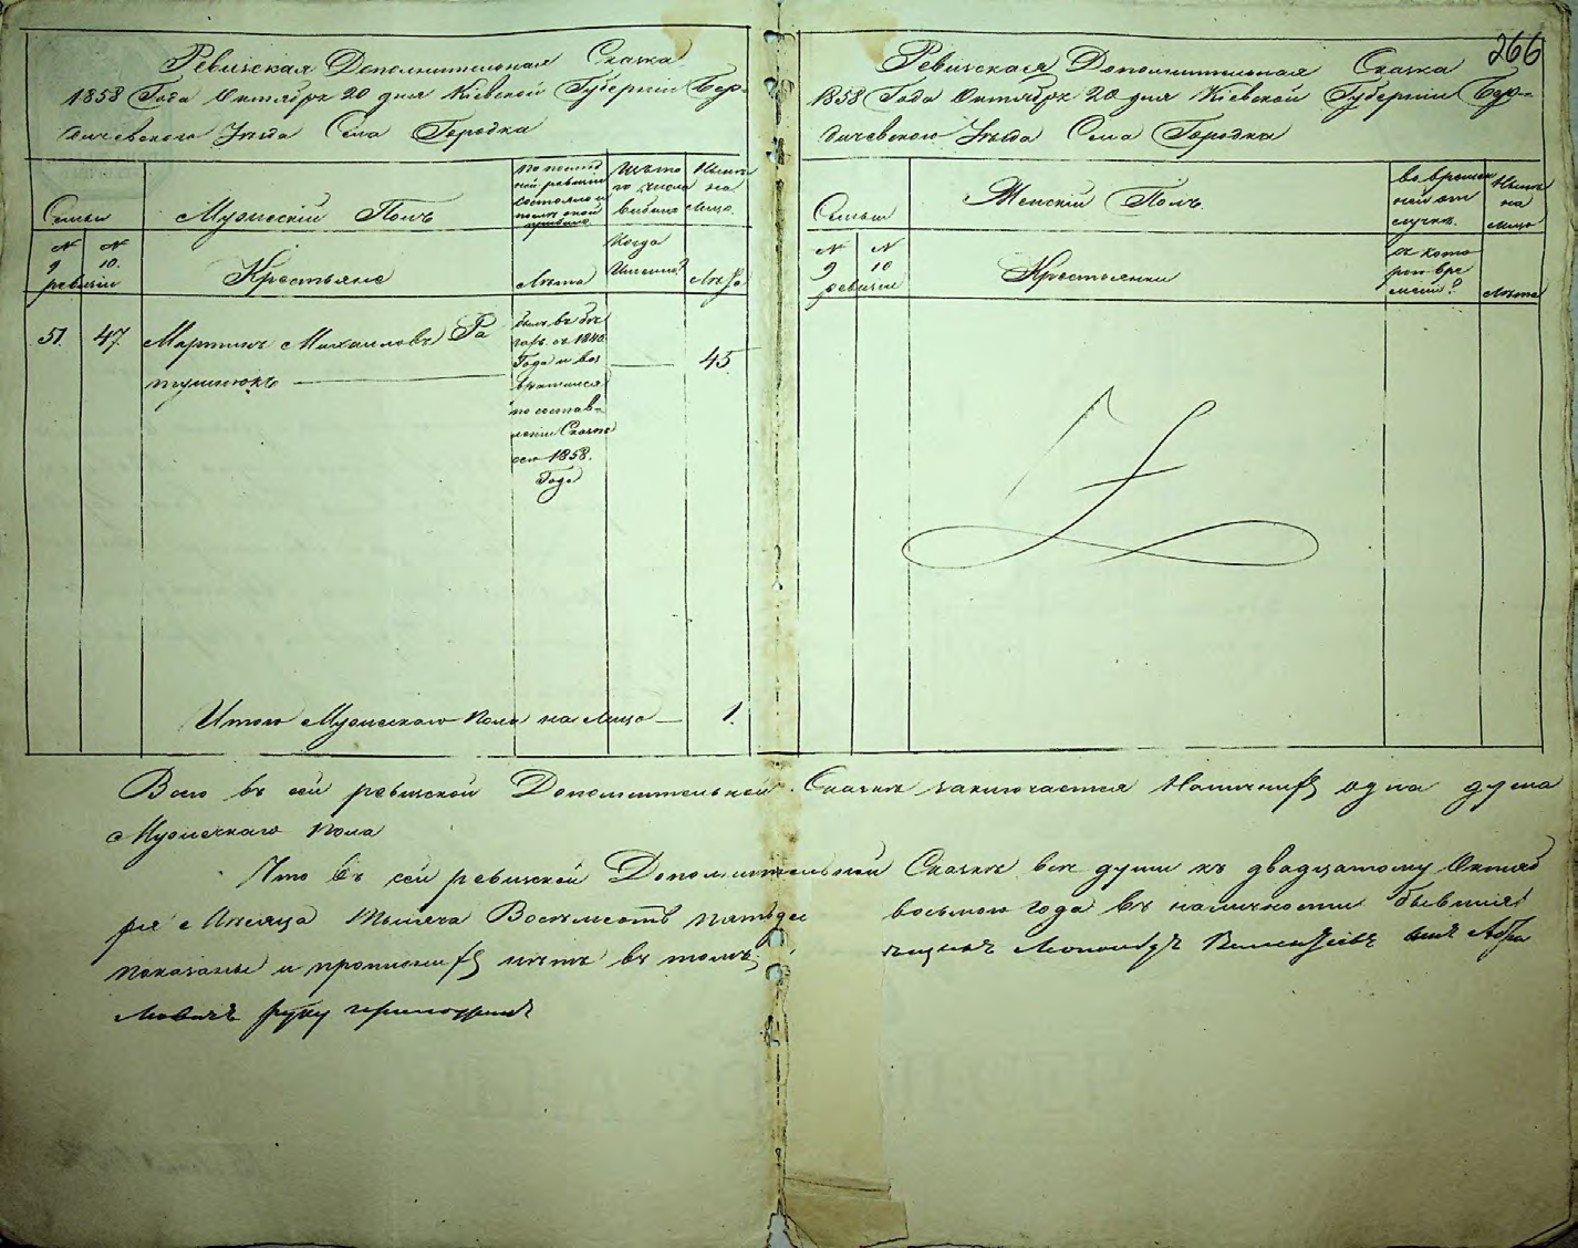 266
Ревизская Дополнительная Сказка
1858 Года Октября 20 дня Кіевской Губерніи Бер-
дичевского Уезда Села Городка
Семьи
Мужескій Полъ
по послед
ней ревизіи
состояло и
после оной
прибыло
Изъ того
числа
выбыло
Ныне
на
лицо
№ №
9 10.
ревизіи
Крестьяне
Лета
Когда
Именно?
Лета
51. 47. Мартинъ Михайловъ Ра
тушнюкъ
былъ въ бе
гахъ съ 1840
Года и воз
вратился
по состав-
леніи Сказок
сего 1858.
Года
45
Итого Мужескаго пола на лицо 1.
Ревизская Дополнительная Сказка
1858 Года Октября 20 дня Кіевской Губерніи Бер-
дичевского Уезда Села Городка
Семьи
Женскій Полъ.
во времен
ной от
лучке.
Ныне
на
лицо
№ №
9 10
ревизіи
Крестьянки
съ кото
раго вре
мени?
Лета
Всего въ сей ревизской Дополнительной Сказке заключается Наличныхъ одна душа
Мужескаго пола
Что въ сей ревизской Дополнительной Сказке все души къ двадцатому Октяб
ря Месяца Тысяча Восемсотъ пятьдес восьмого года въ наличности бывшія
показаны и прописныхъ нетъ въ томъ
руку приложилъ